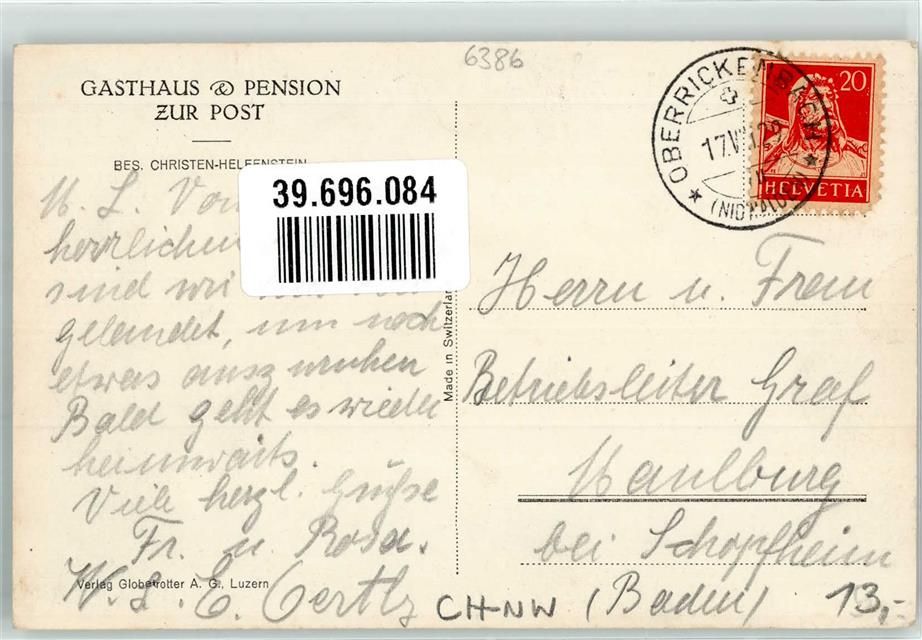 6386
GASTHAUS & PENSION
ZUR POST
BES. CHRISTEN-HELFENSTEIN
39.696.084
M. L. Von
herrlichen
sind wir
gelandet, um noch
etwas auszuruhen
Bald geht es wieder
heimwärts.
Viele herzl. Grüße
Fr. u. Rosa.
W. L. E. Oertly
Verlag Globetrotter A. G., Luzern
Made in Switzerland
OBERRICKENBACH
(NIDWALDEN)
20
HELVETIA
Herrn u. Frau
Betriebsleiter Graf
Maulburg
bei Schopfheim
(Baden)
CH-NW
13,-